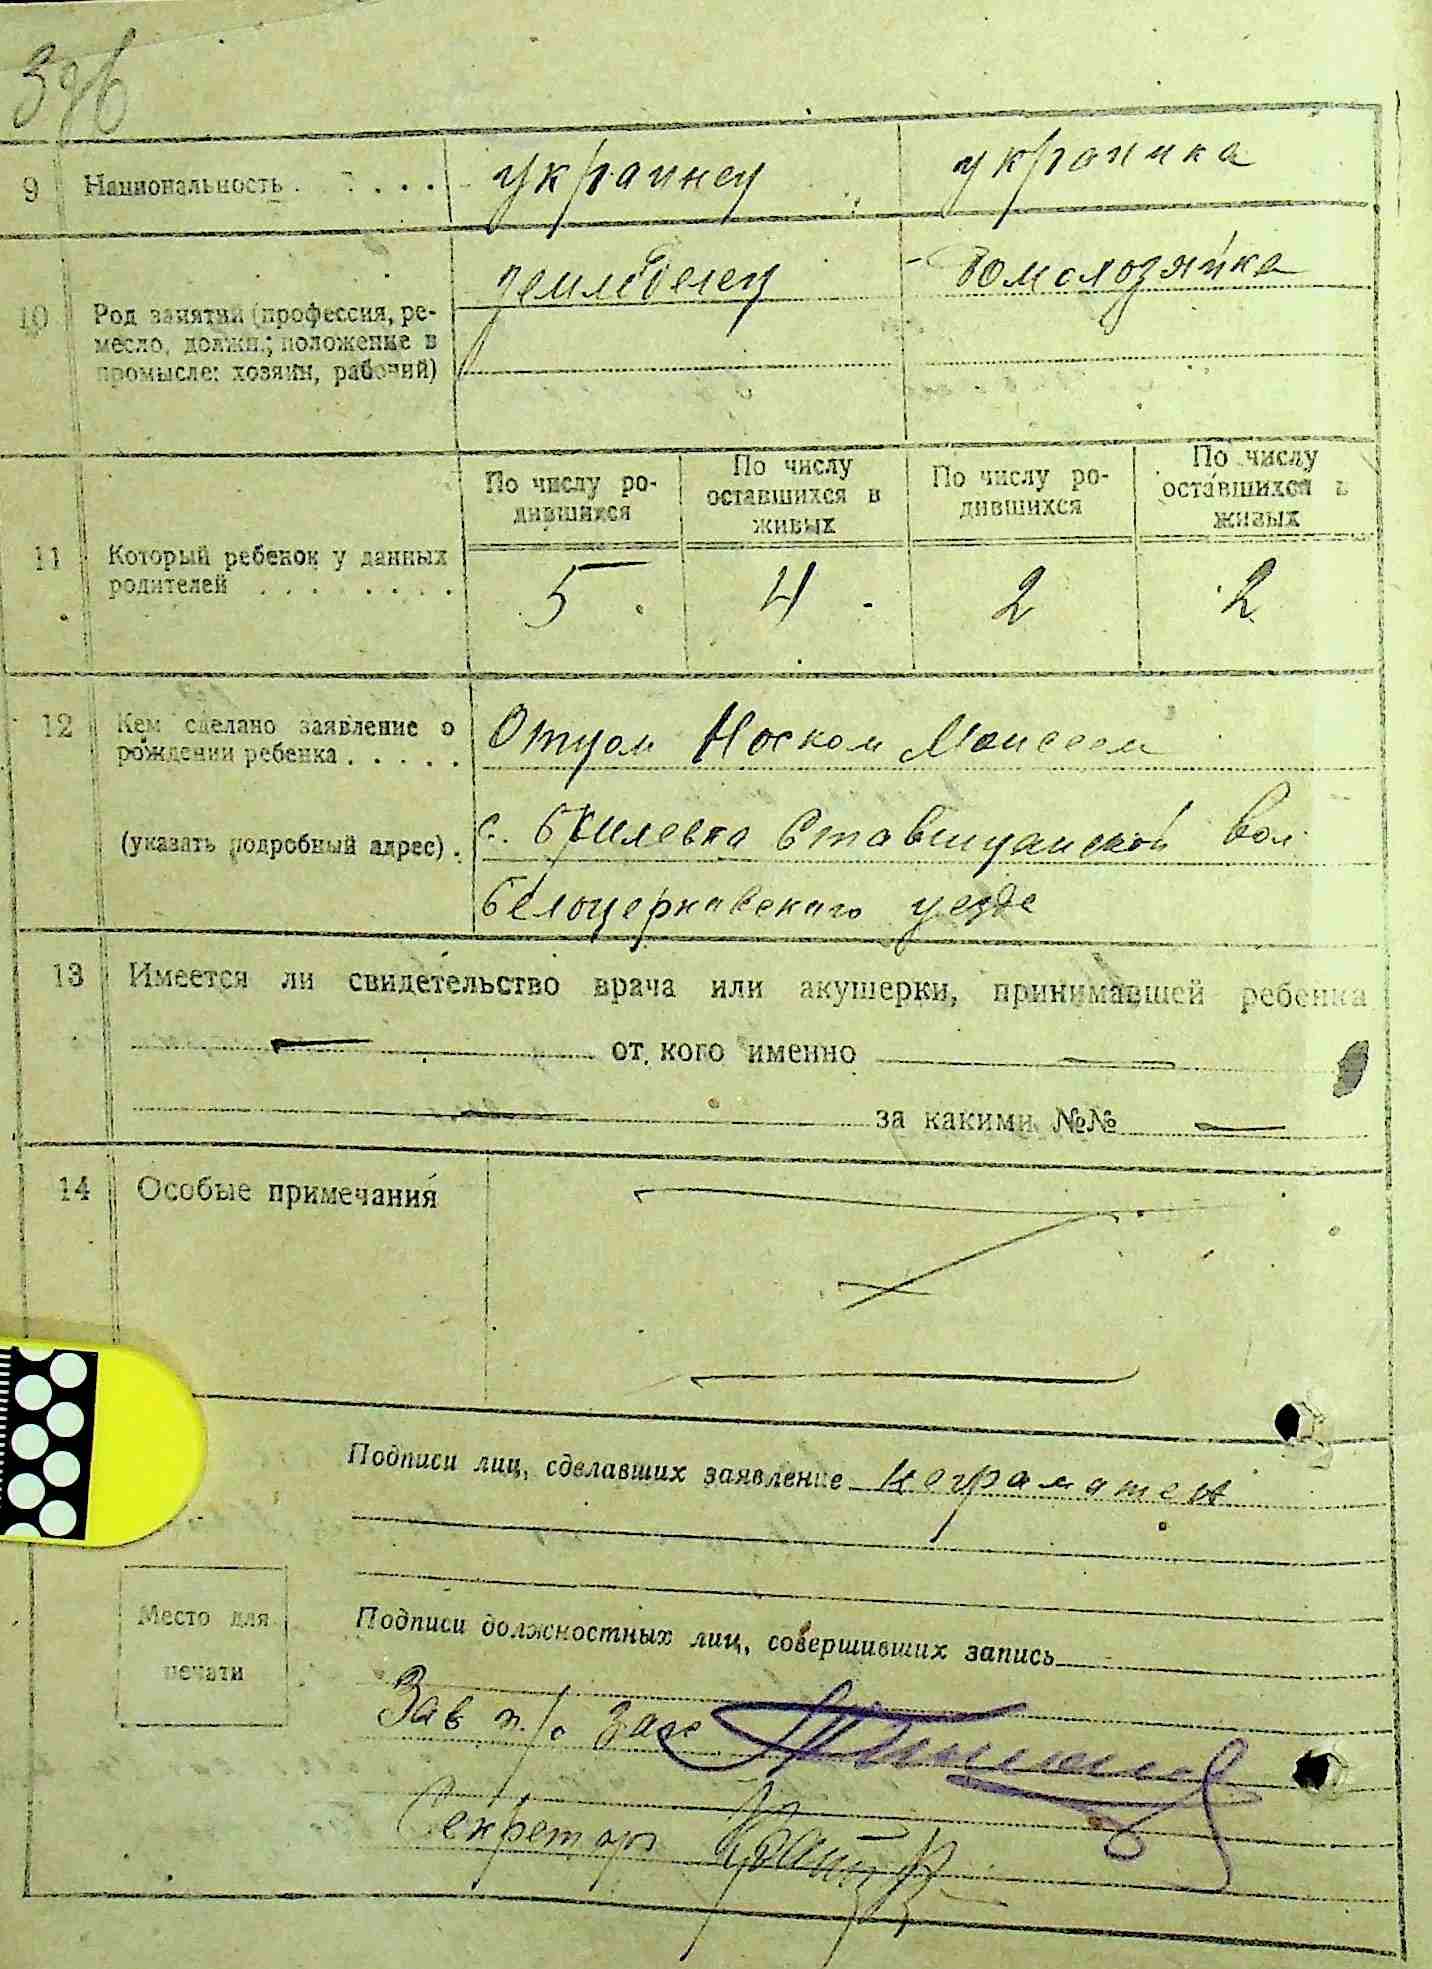 396
9 Национальность . . . . . украинец украинка
10 Род занятий (профессия, ре-
месло, должн.; положение в
промысле: хозяин, рабочий)
земледелец домохозяйка
По числу ро-
дившихся
По числу
оставшихся в
живых
По числу ро-
дившихся
По числу
оставшихся в
живых
11 Который ребенок у данных
родителей . . . . . . . .
5 4 2 2
12 Кем сделано заявление о
рождении ребенка . . . . .
Отцом Носком Моисеем
(указать подробный адрес) .
с. Брилевка Ставищанской вол
Белоцерковского уезде
13 Имеется ли свидетельство врача или акушерки, принимавшей ребенка
— от кого именно —
— за какими №№ —
14 Особые примечания
Подписи лиц, сделавших заявление неграматен
Место для
печати
Подписи должностных лиц, совершивших запись
Зав п/о загс
Секретарь